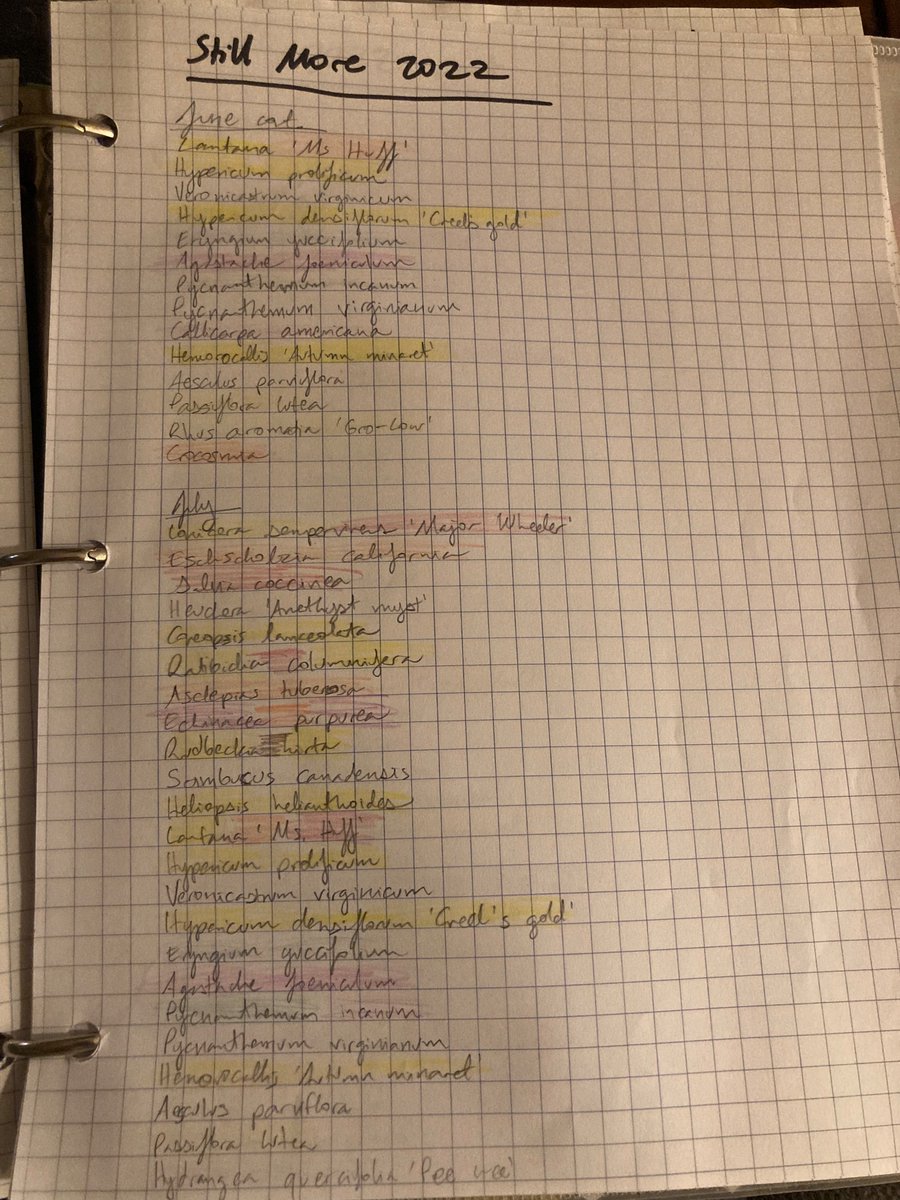 Still More 2022
June cat.
Lantana 'Ms Huff'
Hypericum prolificum
Veronicastrum virginicum
Hypericum densiflorum 'Creel's gold'
Eryngium yuccifolium
Agastache foeniculum
Pycnanthemum incanum
Pycnanthemum virginianum
Callicarpa americana
Hemorocallis 'Autumn minaret'
Aesculus parviflora
Passiflora lutea
Rhus aromatia 'Gro-Low'
Crocosmia
July
Lonicera sempervirens 'Major Wheeler'
Eschscholzia california
Salvia coccinea
Heuchera 'Amethyst myst'
Coreopsis lanceolata
Ratibida columnifera
Asclepias tuberosa
Echinacea purpurea
Rudbeckia hirta
Sambucus canadensis
Heliopsis helianthoides
Lantana 'Ms. Huff'
Hypericum prolificum
Veronicastrum virginicum
Hypericum densiflorum 'Creel's gold'
Eryngium yuccifolium
Agastache foeniculum
Pycnanthemum incanum
Pycnanthemum virginianum
Hemorocallis 'Autumn minaret'
Aesculus parviflora
Passiflora lutea
Hydrangea quercifolia 'Pee wee'